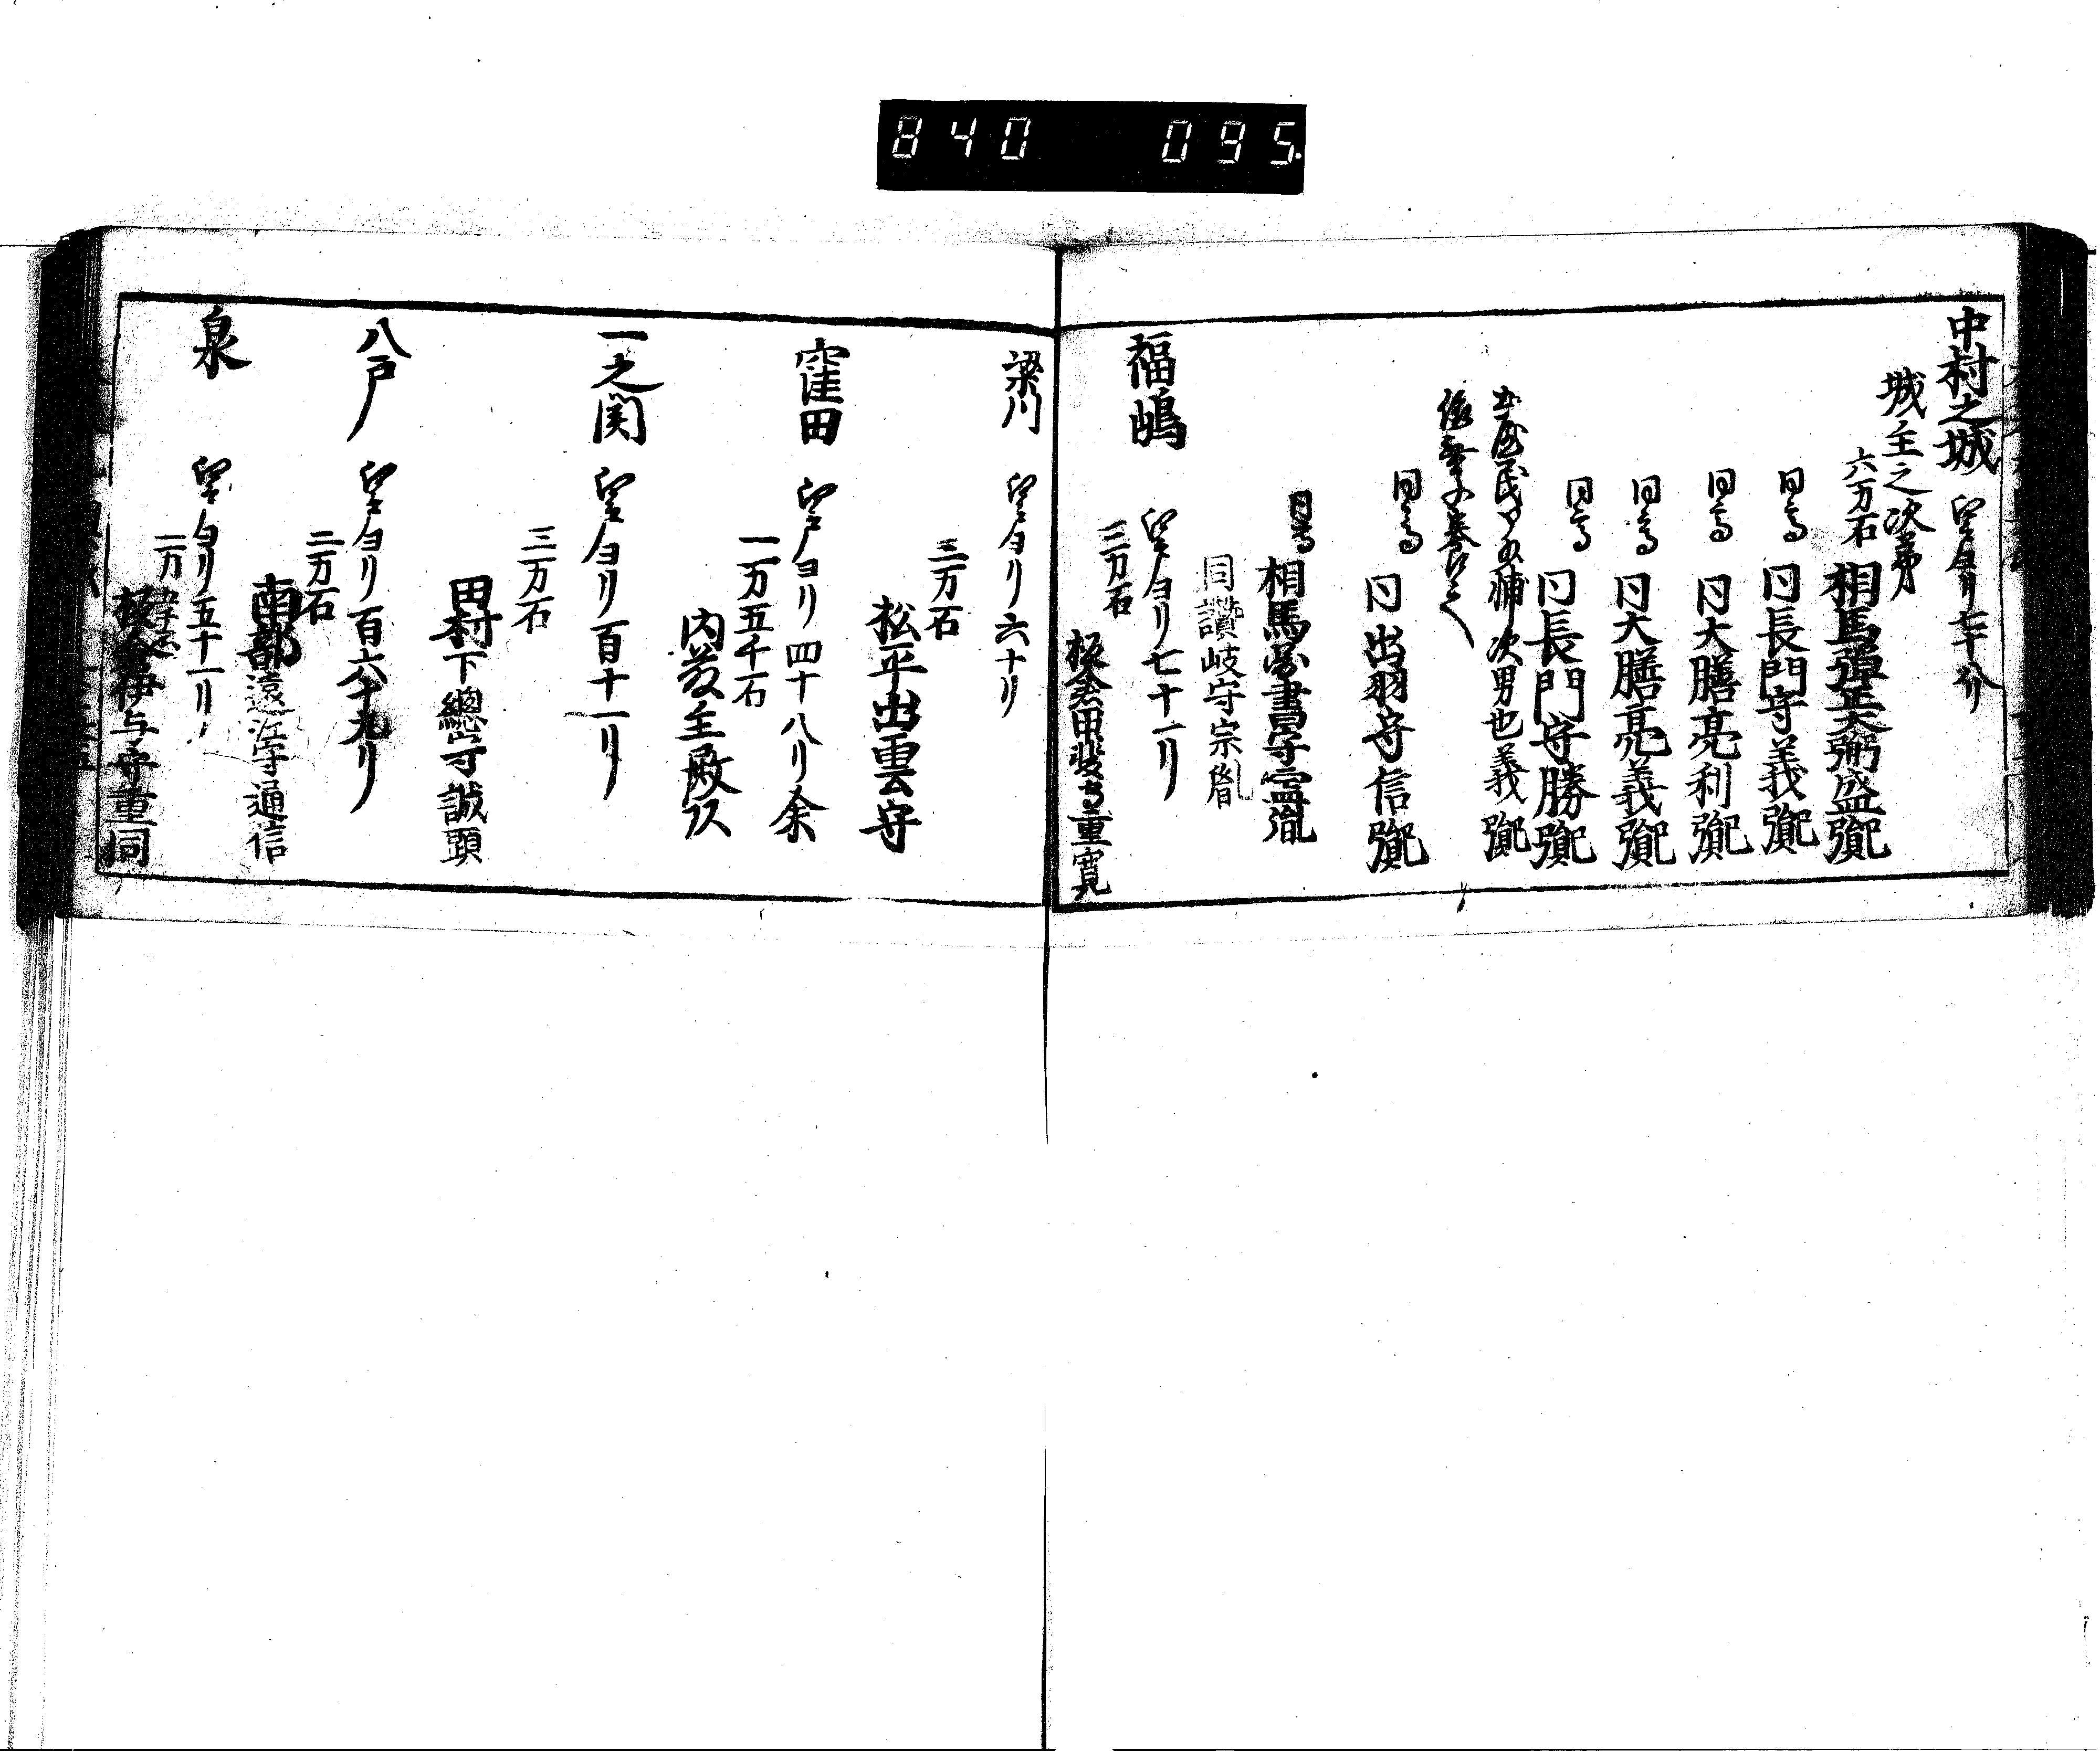 840 095
中村之城 江戸ヨリ七十八リ
城主之次第
六万石 相馬弾正大弼盛胤
同高 同長門守義胤
同高 同大膳亮利胤
同高 同大膳亮義胤
同高 同長門守勝胤
次男也義胤
同高 同出羽守信胤
同高 相馬図書守富胤
同讃岐守宗胤
福嶋 江戸ヨリ七十一リ
三万石 板倉甲斐守重寛
梁川 江戸ヨリ六十リ
三万石
松平出雲守
窪田 江戸ヨリ四十八リ余
一万五千石
内藤主殿頭
一之関 江戸ヨリ百十一リ
三万石
田村下總守誠顕
八戸 江戸ヨリ百六十九リ
二万石
南部遠江守通信
泉 江戸ヨリ五十一リ
板倉伊与守重同